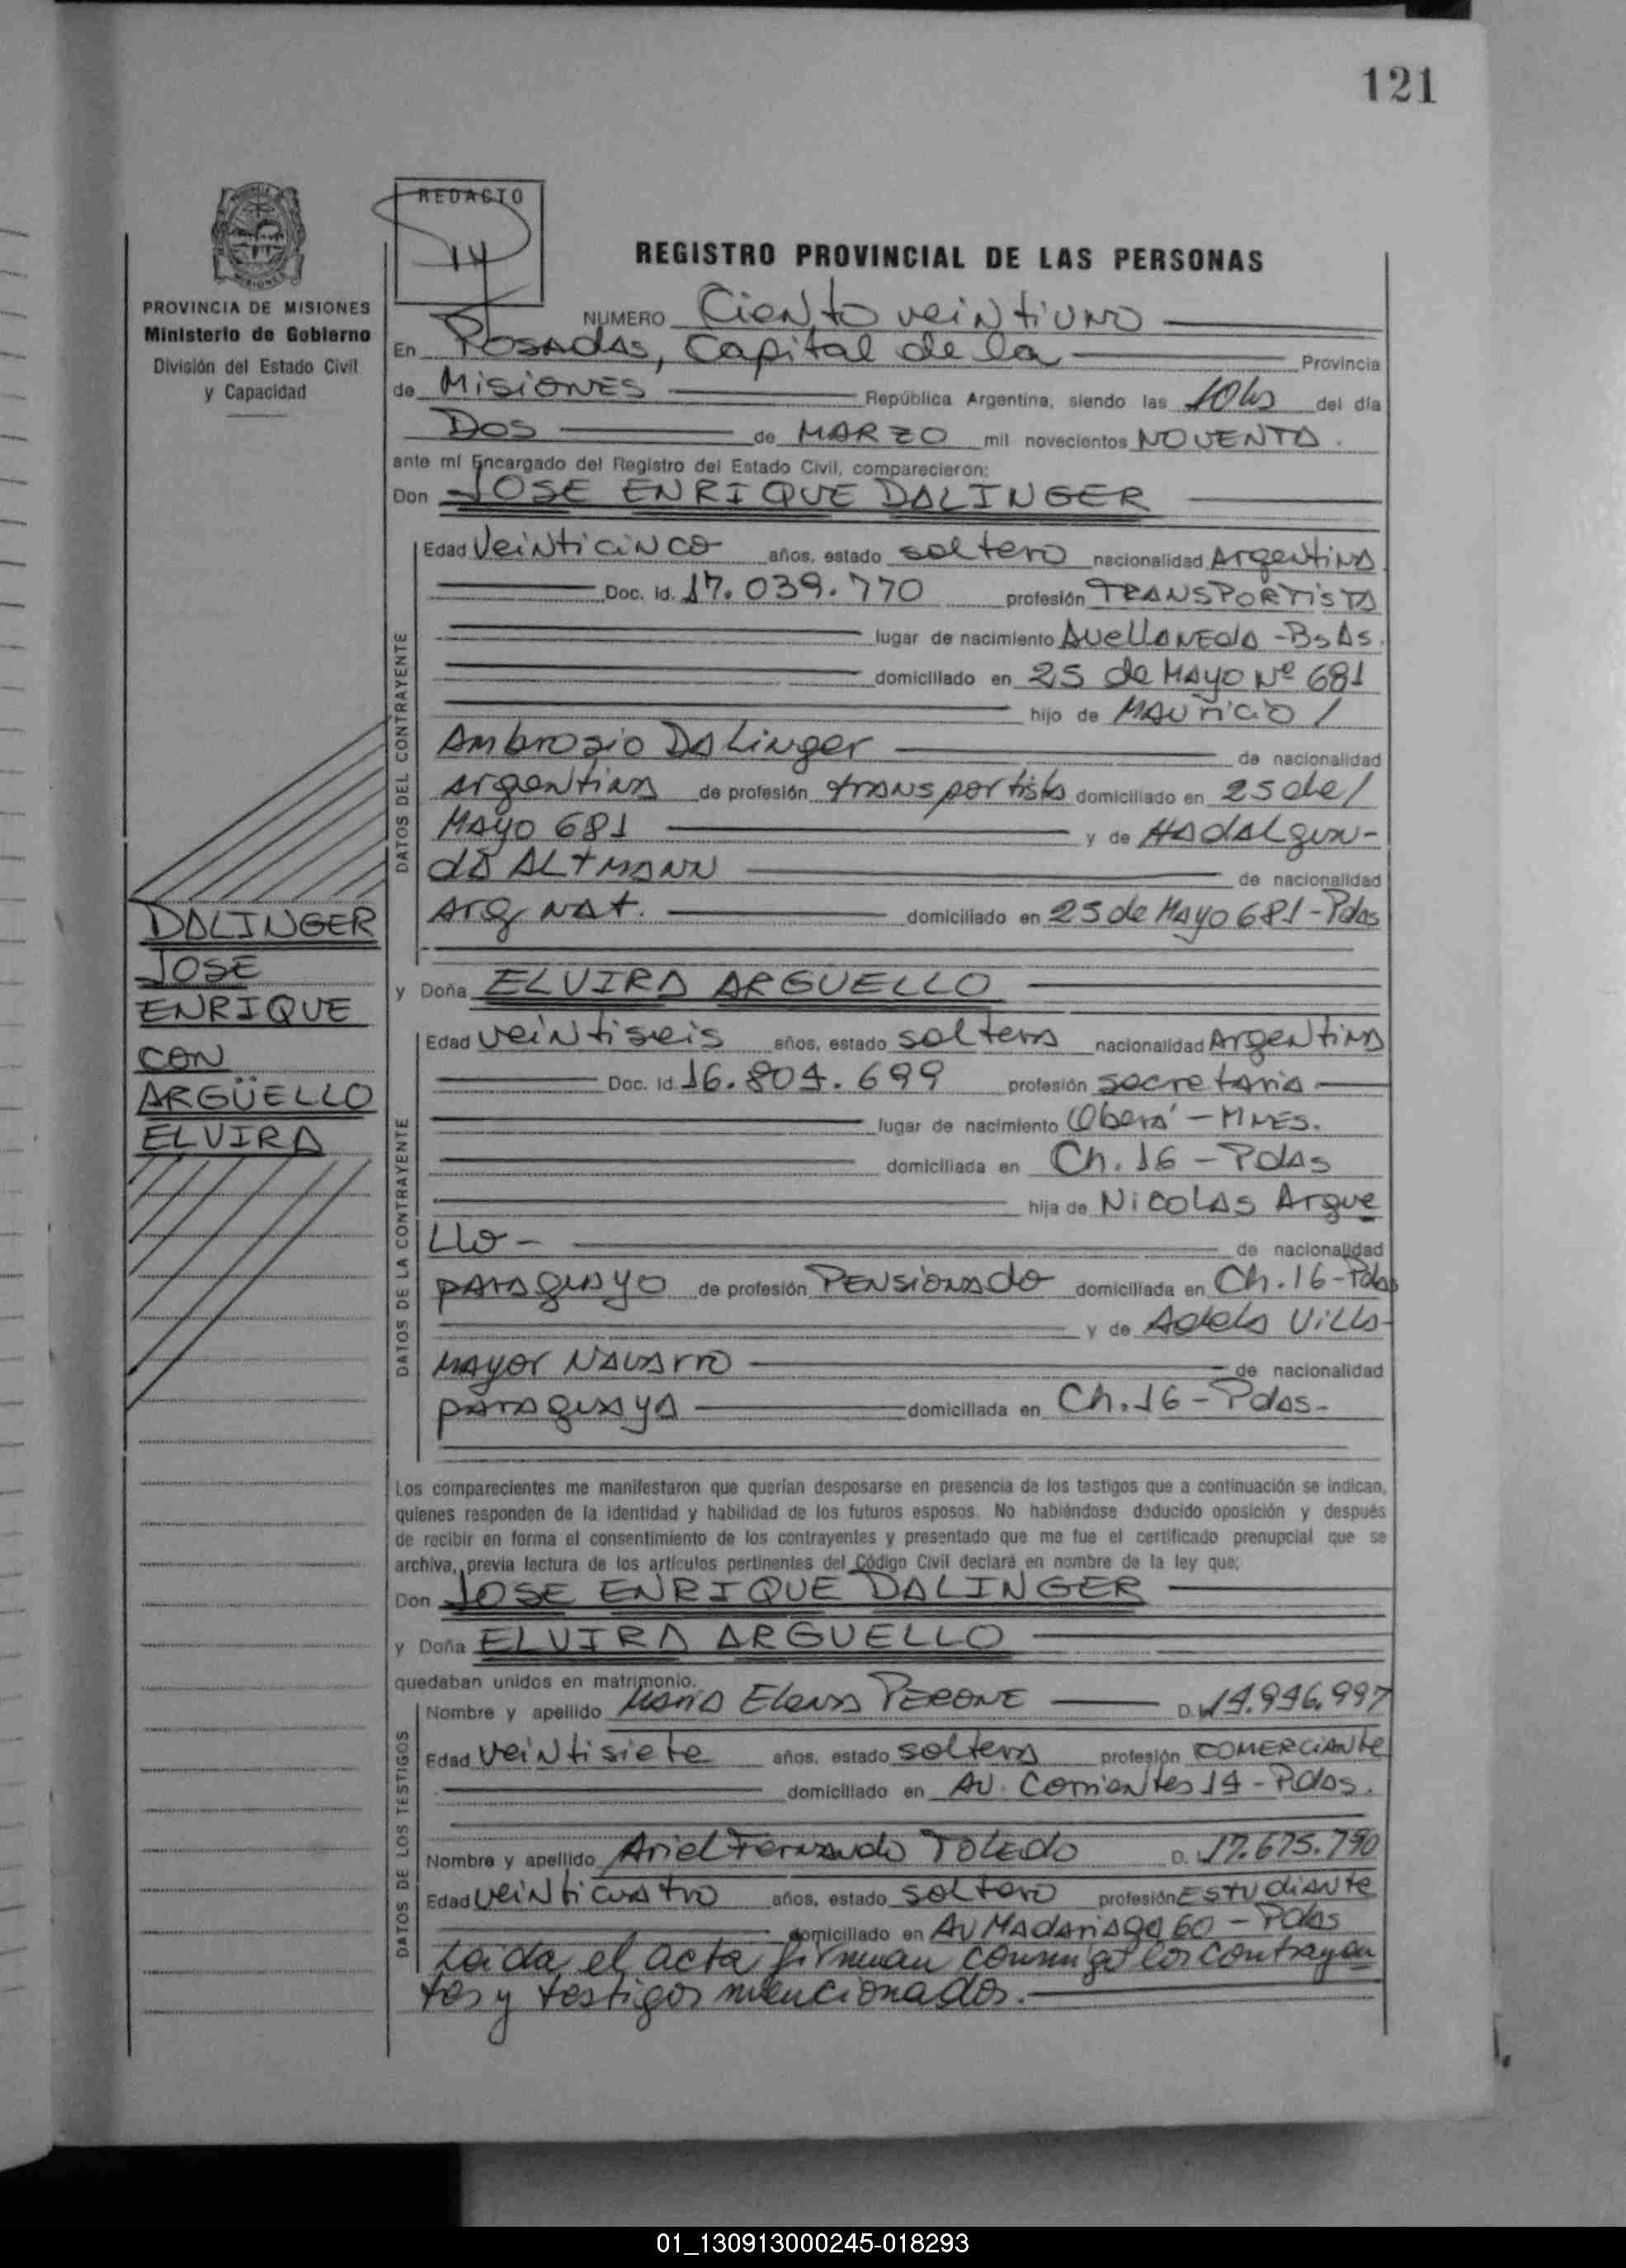 121
REDACTO
14
PROVINCIA DE MISIONES
Ministerio de Gobierno
División del Estado Civil
y Capacidad
REGISTRO PROVINCIAL DE LAS PERSONAS
NUMERO Ciento veintiuno
En Posadas, Capital de la Provincia
de Misiones República Argentina, siendo las 10hs del día
Dos de MARZO mil novecientos NOVENTA.
ante mi Encargado del Registro del Estado Civil, comparecieron:
Don JOSE ENRIQUE DALINGER
DATOS DEL CONTRAYENTE
Edad Veinticinco años, estado soltero nacionalidad Argentina
Doc. Id. 17.039.770 profesión TRANSPORTISTA
lugar de nacimiento Avellaneda - Bs As.
domicililado en 25 de Mayo Nº 681
hijo de Mauricio /
Ambrosio Dalinger de nacionalidad
argentina de profesión transportista domiciliado en 25 de /
Mayo 681 y de Hadalgun-
da ALtmann de nacionalidad
Arg. Nat. domiciliado en 25 de Mayo 681 - Pdas
DALINGER
JOSE
ENRIQUE
CON
ARGÜELLO
ELVIRA
y Doña ELVIRA ARGUELLO
DATOS DE LA CONTRAYENTE
Edad Veintiseis años, estado soltera nacionalidad Argentina
Doc. Id. 16.804.699 profesión secretaria
lugar de nacimiento Oberá - Mnes.
domiciliada en Ch. 16 - Pdas
hija de Nicolas Argue
llo - de nacionalidad
paraguayo de profesión Pensionado domiciliada en Ch. 16 - Pdas
y de Adela Villa-
mayor Navarro de nacionalidad
paraguaya domiciliada en Ch. 16 - Pdas-
Los comparecientes me manifestaron que querían desposarse en presencia de los testigos que a continuación se indican,
quienes responden de la identidad y habilidad de los futuros esposos. No habiéndose deducido oposición y después
de recibir en forma el consentimiento de los contrayentes y presentado que me fue el certificado prenupcial que se
archiva, previa lectura de los artículos pertinentes del Código Civil declaré en nombre de la ley que;
Don JOSE ENRIQUE DALINGER
y Doña ELVIRA ARGUELLO
quedaban unidos en matrimonio.
DATOS DE LOS TESTIGOS
Nombre y apellido Maria Elena PERONE D. 14.946.997
Edad Veintisiete años, estado soltera profesión COMERCIANte
domiciliado en Av. Corrientes 14 - Pdas.
Nombre y apellido Ariel Fernando Toledo D. 17.675.790
Edad Veinticuatro años, estado soltero profesión EStudiante
domiciliado en Av Madariaga 60 - Pdas
Leída el acta firman conmigo los contrayen
tes y testigos mencionados.
01_130913000245-018293